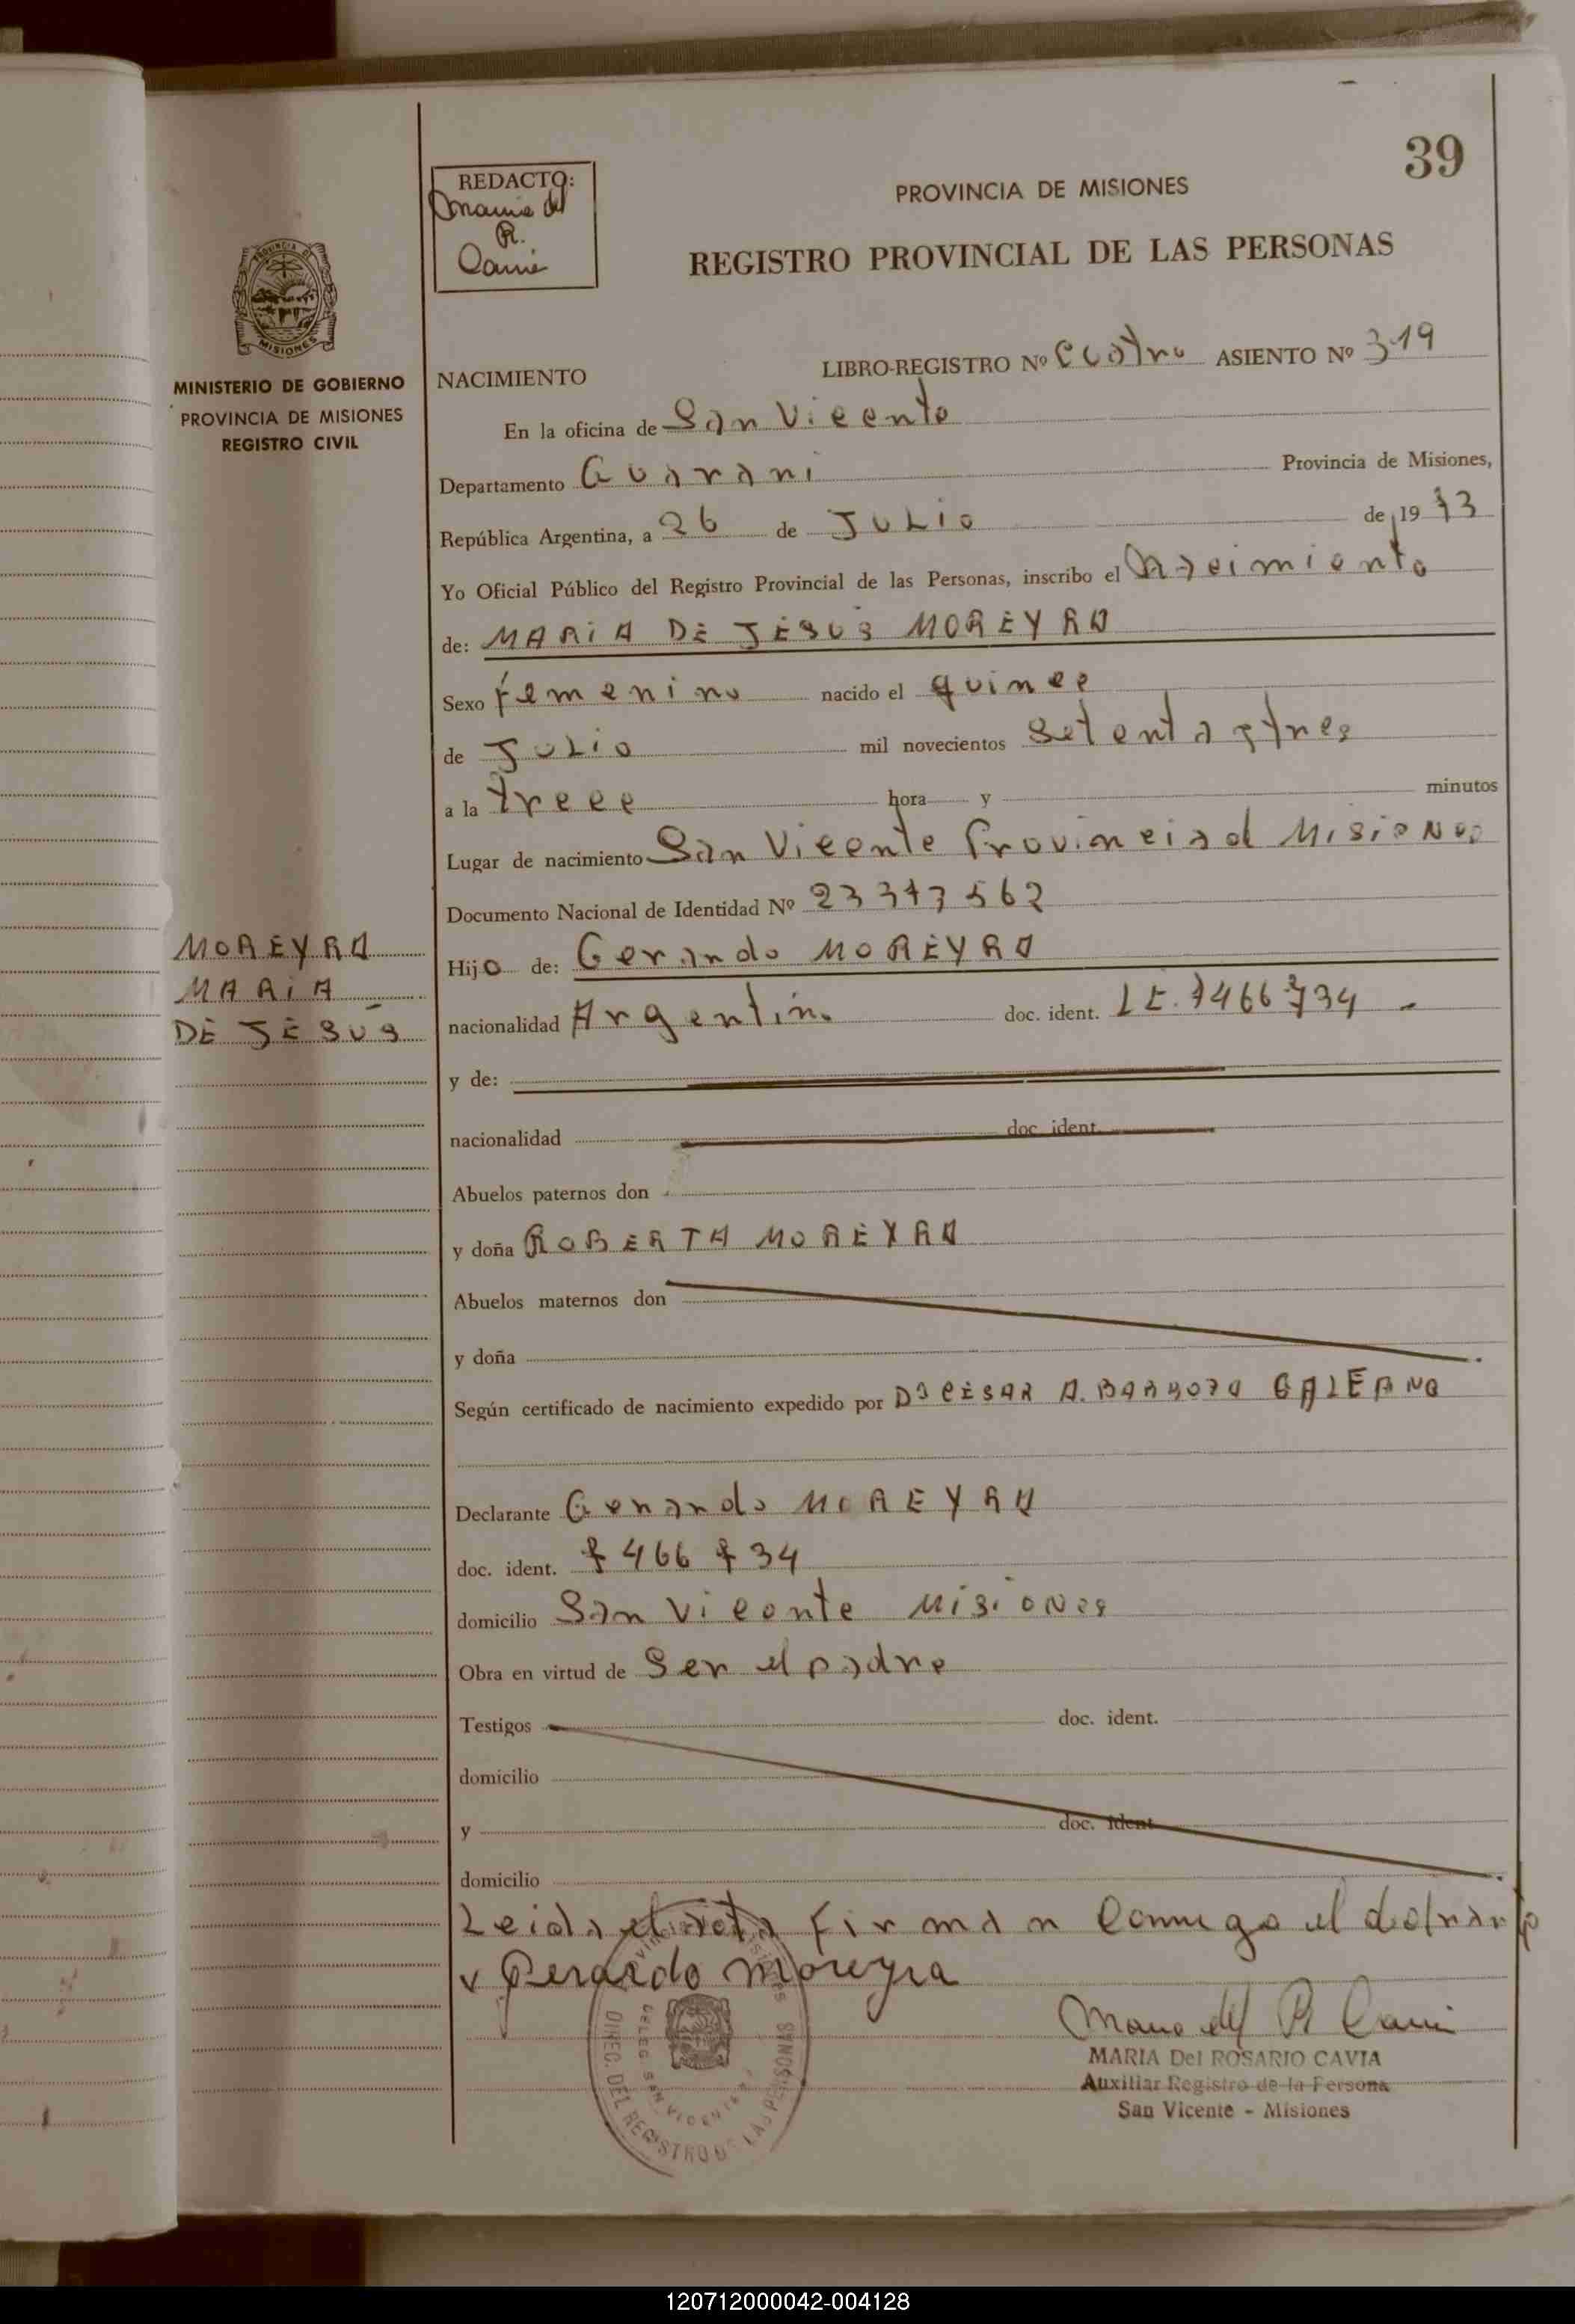 39
REDACTO:
Maria del
R.
Cavia
PROVINCIA DE MISIONES
REGISTRO PROVINCIAL DE LAS PERSONAS
MISIONES
MINISTERIO DE GOBIERNO
PROVINCIA DE MISIONES
REGISTRO CIVIL
NACIMIENTO
LIBRO-REGISTRO Nº Cuatro ASIENTO Nº 319
En la oficina de San Vicente
Departamento Guarani Provincia de Misiones,
República Argentina, a 26 de JULio de 1973
Yo Oficial Público del Registro Provincial de las Personas, inscribo el Nacimiento
de: MARIA DE JESUS MOREYRA
Sexo femenino nacido el quince
de JuLio mil novecientos setenta y tres
a la trece hora y minutos
Lugar de nacimiento San Vicente Provincia d MisioNes
Documento Nacional de Identidad Nº 23 377 562
MOREYRA
MARIA
DE JESUS
Hijo de: Gerardo MOREYRA
nacionalidad Argentino doc. ident. LE. 7466734 -
y de:
nacionalidad doc. ident.
Abuelos paternos don
y doña ROBERTA MOREYRA
Abuelos maternos don
y doña
Según certificado de nacimiento expedido por Dr CESAR A. BARBOZA GALEANO
Declarante Gerardo MOREYRA
doc. ident. 7466734
domicilio San Vicente MisioNes
Obra en virtud de Ser el padre
Testigos doc. ident.
domicilio
y doc. ident.
domicilio
Leida el acta firman conmigo el declarante
Gerardo Moreyra
Maria del R Cavia
MARIA Del ROSARIO CAVIA
Auxiliar Registro de la Persona
San Vicente - Misiones
DIREC. DEL REGISTRO DE LAS PERSONAS
DELEG. SAN VICENTE
120712000042-004128